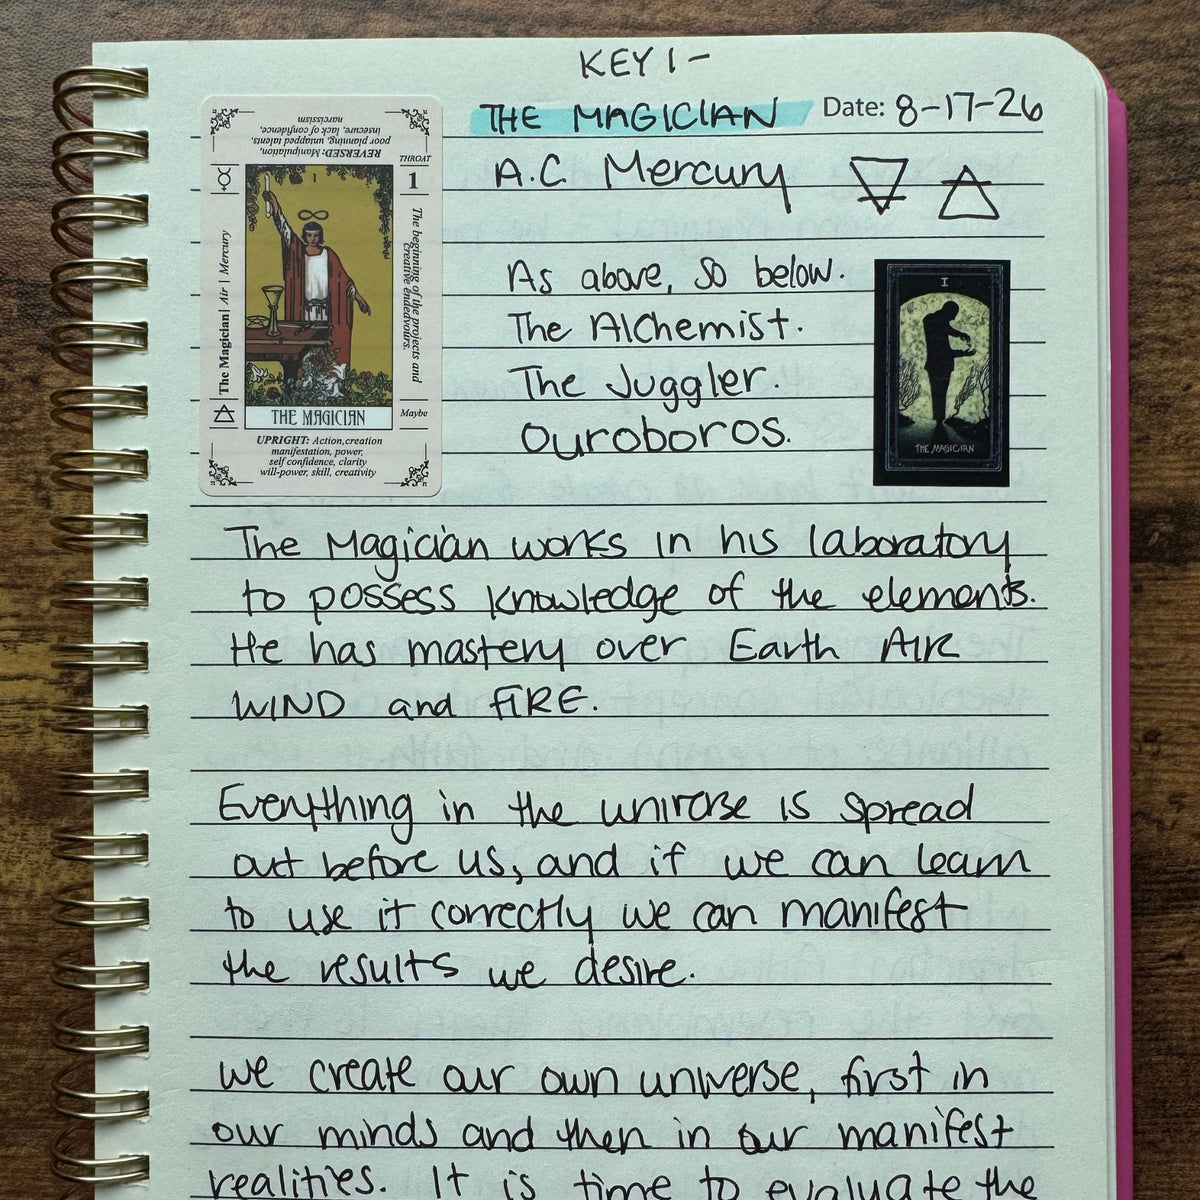 KEY 1 -
THE MAGICIAN Date: 8-17-26
A.C Mercury
As above, so below.
The Alchemist.
The Juggler.
Ouroboros.
REVERSED: Manipulation,
poor planning, untapped talents,
insecure, lack of confidence,
narcissism
THROAT
1
I
The beginning of the projects and
creative endeavours.
The Magician| Air | Mercury
THE MAGICIAN
Maybe
UPRIGHT: Action,creation
manifestation, power,
self confidence, clarity
will-power, skill, creativity
I
THE MAGICIAN
The Magician works in his laboratory
to possess knowledge of the elements.
He has mastery over Earth AIR
WIND and FIRE.
Everything in the universe is spread
out before us, and if we can learn
to use it correctly we can manifest
the results we desire.
we create our own universe, first in
our minds and then in our manifest
realities. It is time to evaluate the